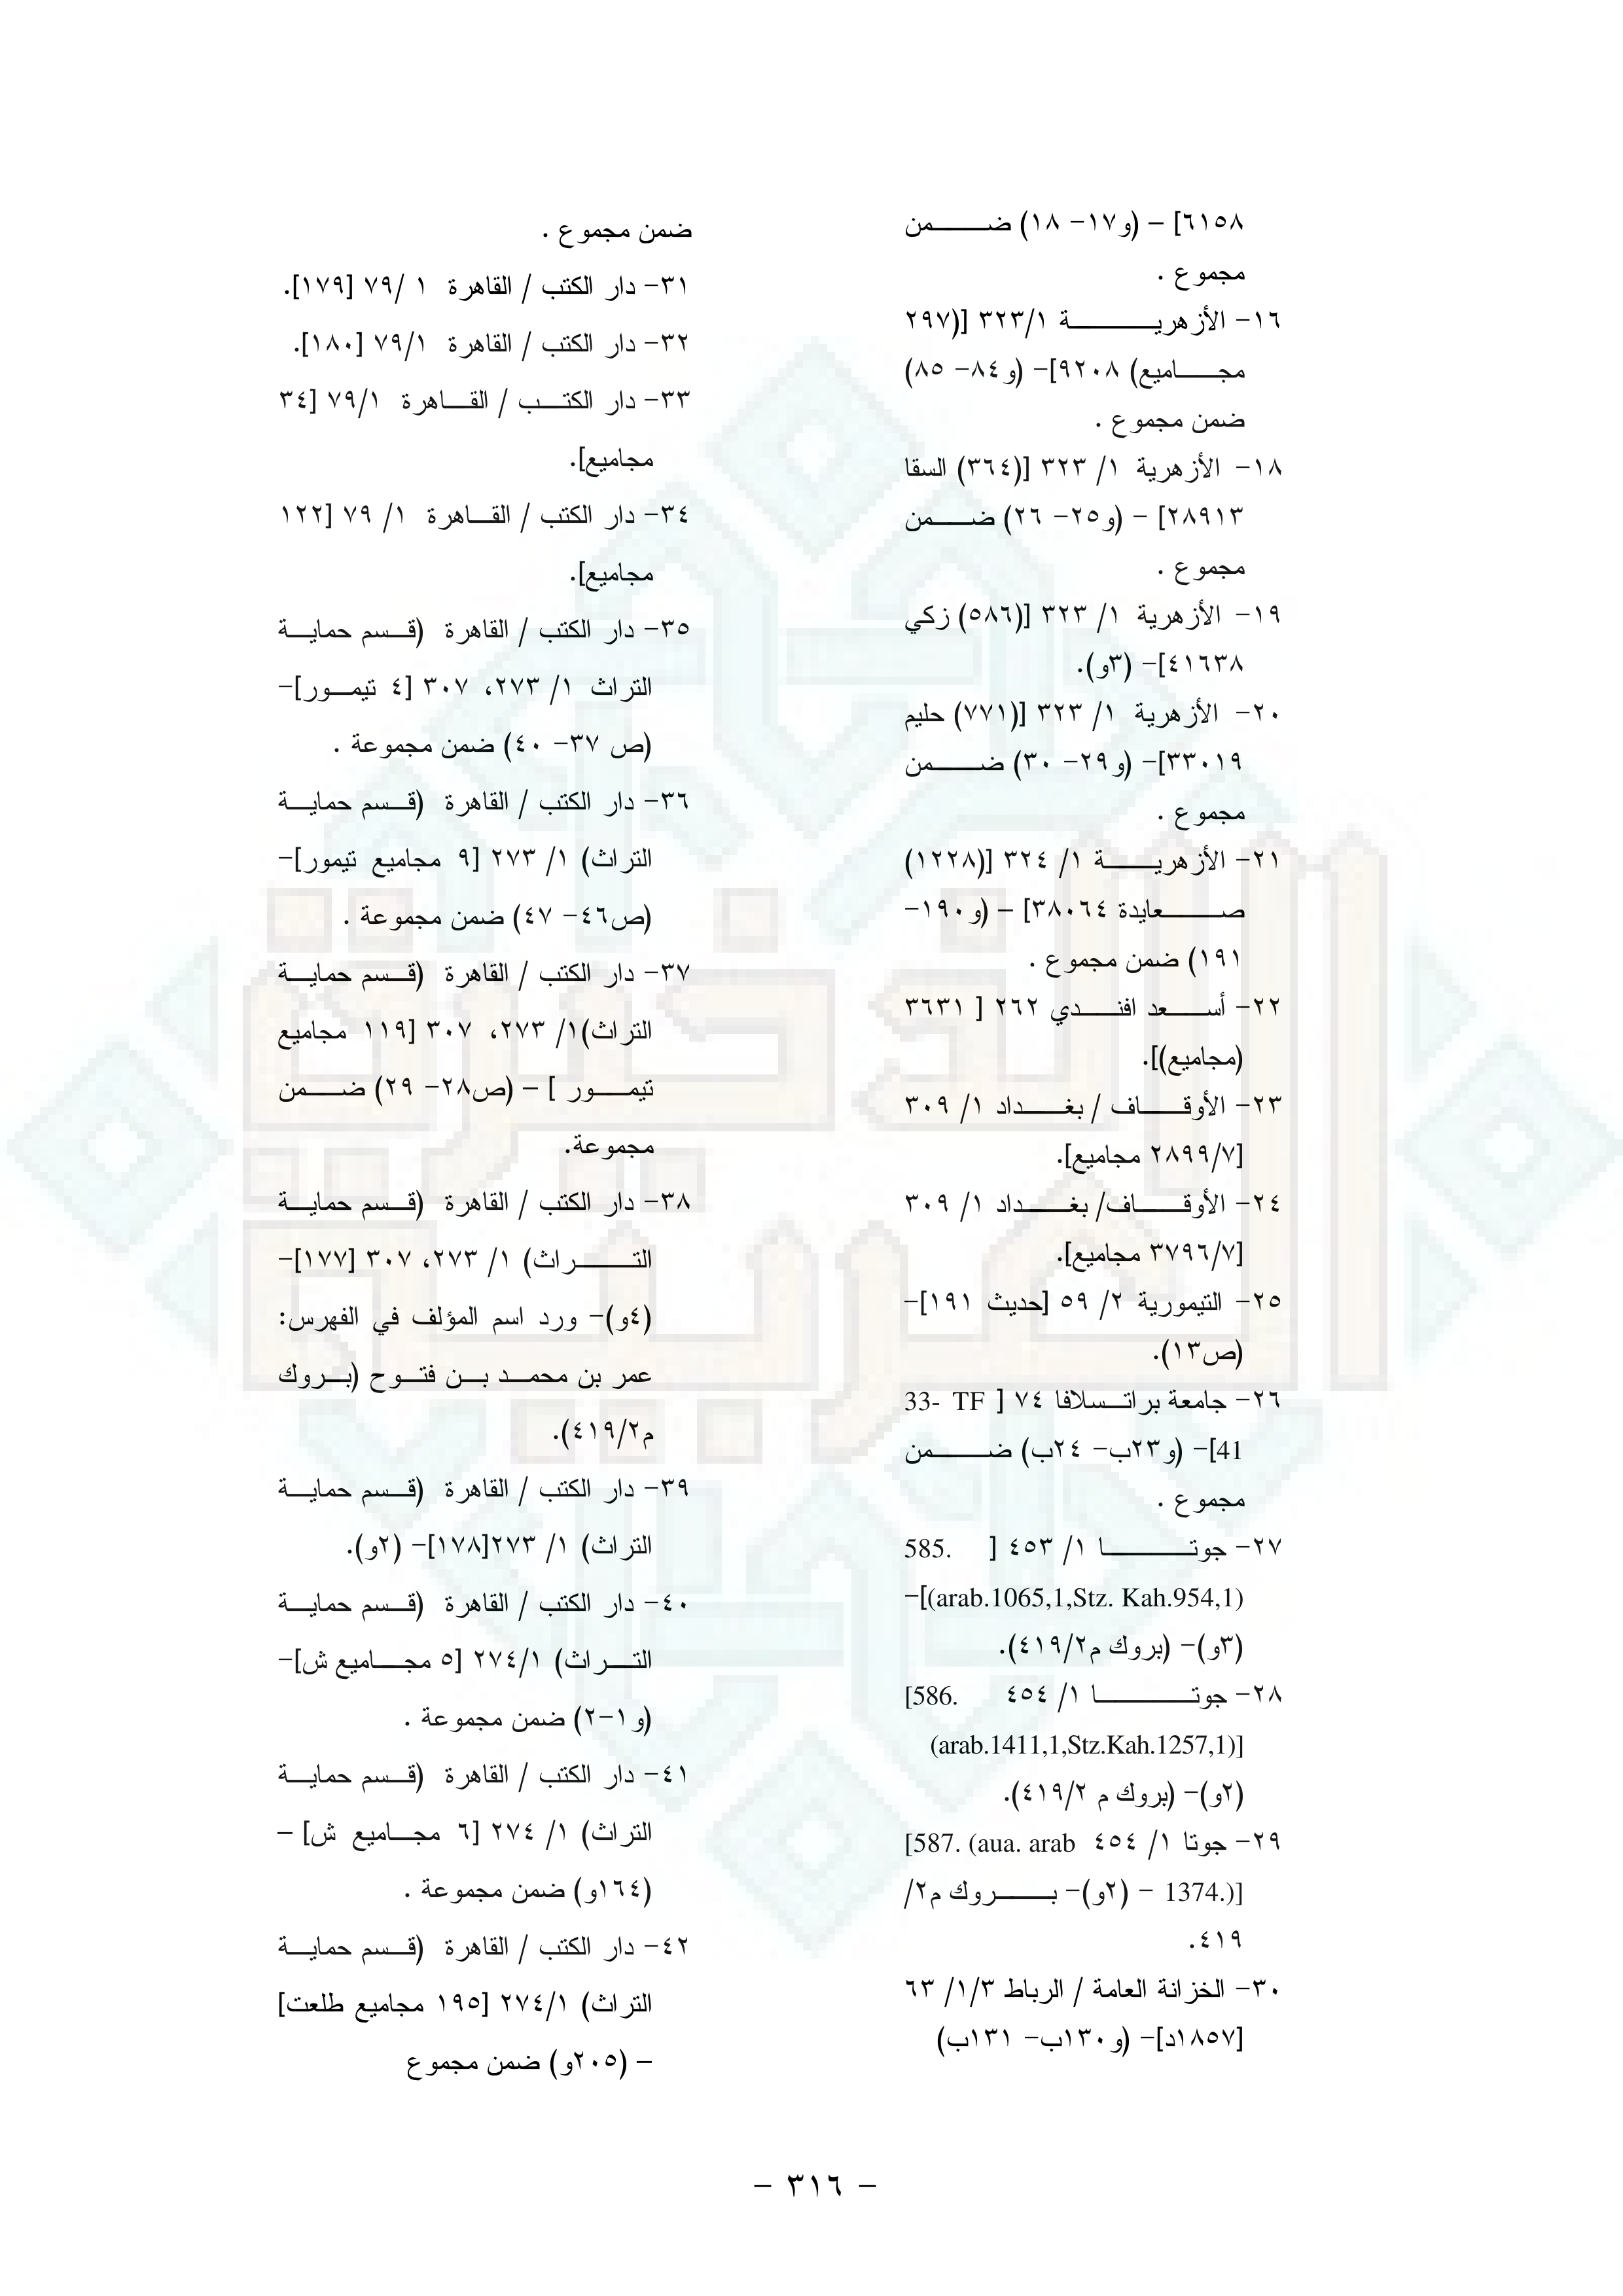 ٦١٥٨] – (و١٧– ١٨) ضمن
مجموع .
١٦– الأزهرية ١/ ٣٢٣ [(٢٩٧
مجاميع) ٩٢٠٨]– (و٨٤– ٨٥)
ضمن مجموع .
١٨– الأزهرية ١/ ٣٢٣ [(٣٦٤) السقا
٢٨٩١٣] – (و٢٥– ٢٦) ضمن
مجموع .
١٩– الأزهرية ١/ ٣٢٣ [(٥٨٦) زكي
٤١٦٣٨]– (٣و).
٢٠– الأزهرية ١/ ٣٢٣ [(٧٧١) حليم
٣٣٠١٩]– (و٢٩– ٣٠) ضمن
مجموع .
٢١– الأزهرية ١/ ٣٢٤ [(١٢٢٨)
صعايدة ٣٨٠٦٤] – (و١٩٠–
١٩١) ضمن مجموع .
٢٢– أسعد افندي ٢٦٢ [ ٣٦٣١
(مجاميع)].
٢٣– الأوقاف / بغداد ١/ ٣٠٩
[٢٨٩٩/٧ مجاميع].
٢٤– الأوقاف/ بغداد ١/ ٣٠٩
[٣٧٩٦/٧ مجاميع].
٢٥– التيمورية ٢/ ٥٩ [حديث ١٩١]–
(ص١٣).
٢٦– جامعة براتسلافا ٧٤ [ 33- TF
41]– (و٢٣ب– ٢٤ب) ضمن
مجموع .
٢٧– جوتا ١/ ٤٥٣ [ 585.
(arab.1065,1,Stz. Kah.954,1)]–
(٣و)– (بروك م٤١٩/٢).
٢٨– جوتا ١/ ٤٥٤ [586.
(arab.1411,1,Stz.Kah.1257,1)]
(٢و)– (بروك م ٤١٩/٢).
٢٩– جوتا ١/ ٤٥٤ [587. (aua. arab
1374.)] – (٢و)– بروك م٢/
٤١٩.
٣٠– الخزانة العامة / الرباط ٣/١/ ٦٣
[١٨٥٧د]– (و١٣٠ب– ١٣١ب)
ضمن مجموع .
٣١– دار الكتب / القاهرة ١ /٧٩ [١٧٩].
٣٢– دار الكتب / القاهرة ١/ ٧٩ [١٨٠].
٣٣– دار الكتب / القاهرة ١/ ٧٩ [٣٤
مجاميع].
٣٤– دار الكتب / القاهرة ١/ ٧٩ [١٢٢
مجاميع].
٣٥– دار الكتب / القاهرة (قسم حماية
التراث ١/ ٢٧٣، ٣٠٧ [٤ تيمور]–
(ص ٣٧– ٤٠) ضمن مجموعة .
٣٦– دار الكتب / القاهرة (قسم حماية
التراث) ١/ ٢٧٣ [٩ مجاميع تيمور]–
(ص٤٦– ٤٧) ضمن مجموعة .
٣٧– دار الكتب / القاهرة (قسم حماية
التراث)١/ ٢٧٣، ٣٠٧ [١١٩ مجاميع
تيمور ] – (ص٢٨– ٢٩) ضمن
مجموعة.
٣٨– دار الكتب / القاهرة (قسم حماية
التراث) ١/ ٢٧٣، ٣٠٧ [١٧٧]–
(٤و)– ورد اسم المؤلف في الفهرس:
عمر بن محمد بن فتوح (بروك
م٤١٩/٢).
٣٩– دار الكتب / القاهرة (قسم حماية
التراث) ١/ ٢٧٣[١٧٨]– (٢و).
٤٠– دار الكتب / القاهرة (قسم حماية
التراث) ١/ ٢٧٤ [٥ مجاميع ش]–
(و١–٢) ضمن مجموعة .
٤١– دار الكتب / القاهرة (قسم حماية
التراث) ١/ ٢٧٤ [٦ مجاميع ش] –
(١٦٤و) ضمن مجموعة .
٤٢– دار الكتب / القاهرة (قسم حماية
التراث) ١/ ٢٧٤ [١٩٥ مجاميع طلعت]
– (٢٠٥و) ضمن مجموع
– ٣١٦ –